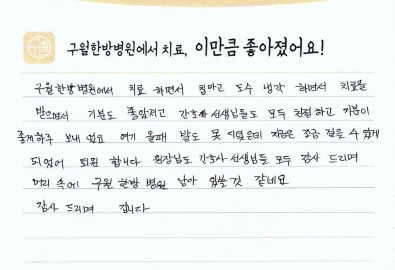 구월한방병원에서 치료, 이만큼 좋아졌어요!
구월한방병원에서 치료 하면서 침맞고 도수 냉각 하면서 치료를
받으면서 기분도 좋았지고 간호사 선생님들도 모두 친절하고 기분이
좋게하주 보내 었요 여기 올때 발도 못 디뎠는데 지금은 조금 걸을 수 있게
되었어 퇴원 합니다 원장님도 간호사 선생님들 모두 감사 드리며
머리 속에 구원 한방 병원 남아 있을 것 같네요
감사 드리며 갑니다